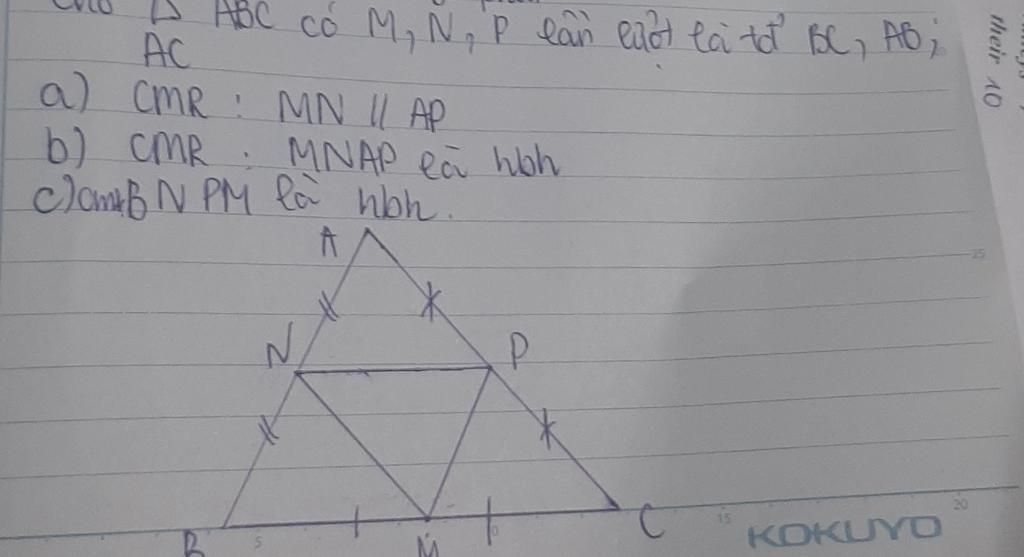 Cho Δ ABC có M, N, P lần lượt là tđ BC, AB,
AC
a) CMR : MN // AP
b) CMR : MNAP là hbh
c) cmr BNPM là hbh.
A
N
P
B
M
C
their 10
25
5
10
15
20
KOKUYO